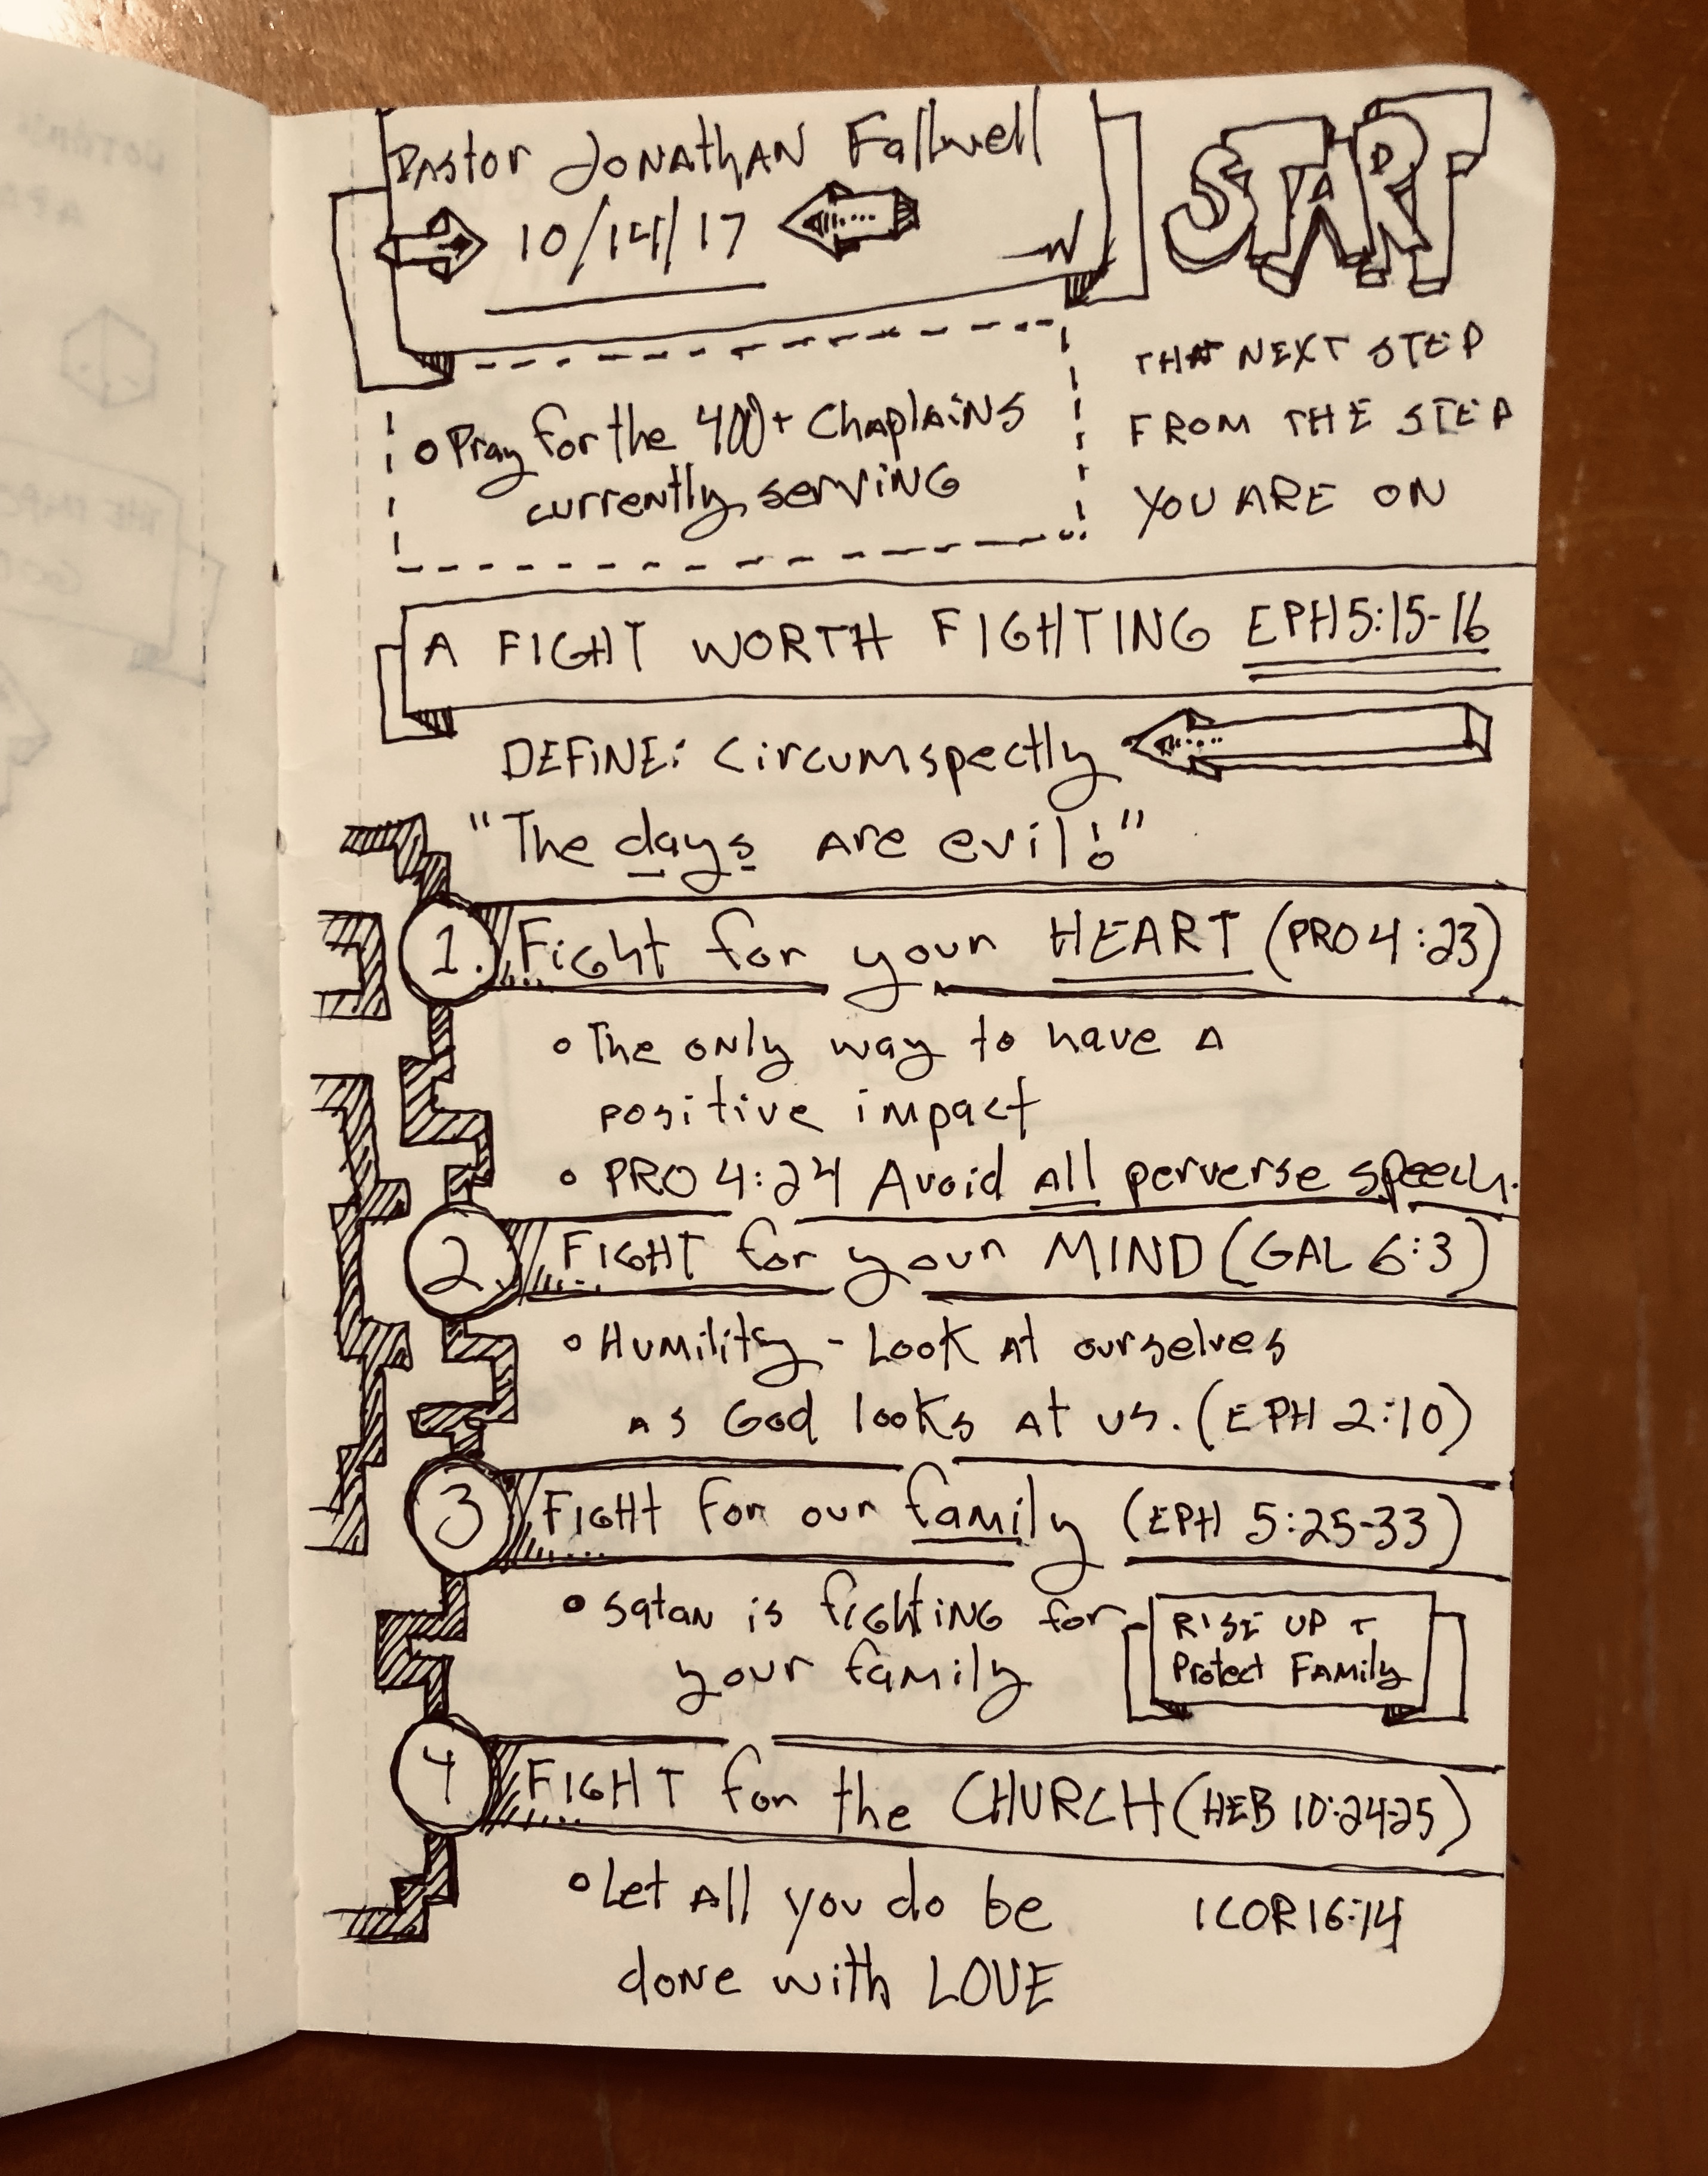 Pastor Jonathan Fallwell
10/14/17
START
THAT NEXT STEP
FROM THE STEP
YOU ARE ON
Pray for the 400+ Chaplains
currently serving
A FIGHT WORTH FIGHTING EPH 5:15-16
DEFINE: Circumspectly
"The days are evil!"
1. Fight for your HEART (PRO 4:23)
The only way to have a
positive impact
PRO 4:24 Avoid all perverse speech.
2. FIGHT for your MIND (GAL 6:3)
Humility - Look at ourselves
as God looks at us. (EPH 2:10)
3 FIGHT For our family (EPH 5:25-33)
Satan is fighting for
your family
RISE UP +
Protect Family
4 FIGHT for the CHURCH (HEB 10:24-25)
Let all you do be
done with LOVE
1 COR 16:14